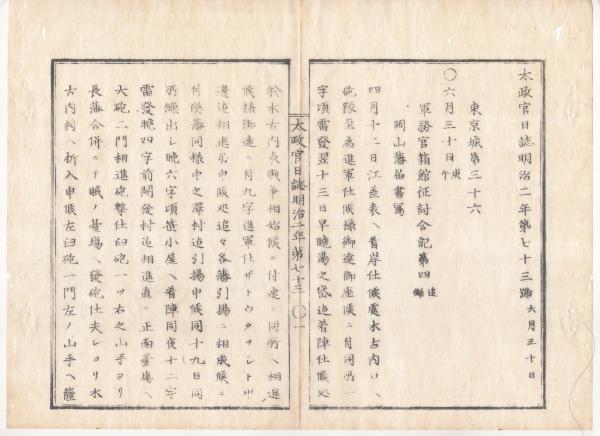 太政官日誌明治二年第七十三號 六月三十日
東京城第三十六
〇六月三十日庚午
軍務官箱館征討合記第四 追録
岡山藩届書寫
四月十二日江差表ヘ着岸仕候處木古内口ヘ
砲隊至急進軍仕候様御達御座候ニ付同所一
字頃雷發翌十三日早曉湯之岱迄着陣仕候処
太政官日誌明治二年第七十三 〇一
於木古内表戰爭相始候ニ付速ニ同所ヘ相進
候様御達ニ付九字進軍仕
邊迄相進居申候処追々各藩引揚ニ相成候ニ
付弊藩同様中之澤村迄引揚申候同十九日同
所繰出シ晩六字頃笹小屋ヘ着陣同夜十二字
雷發曉四字前開發村迄相進直ニ正面臺場ヘ
大砲二門相進砲撃仕臼砲一ツ右之山手ヨリ
長藩合併ニテ眠ノ臺場ヘ發砲仕夫レヨリ木
古内村ヘ折入申候左臼砲一門左ノ山手ヘ